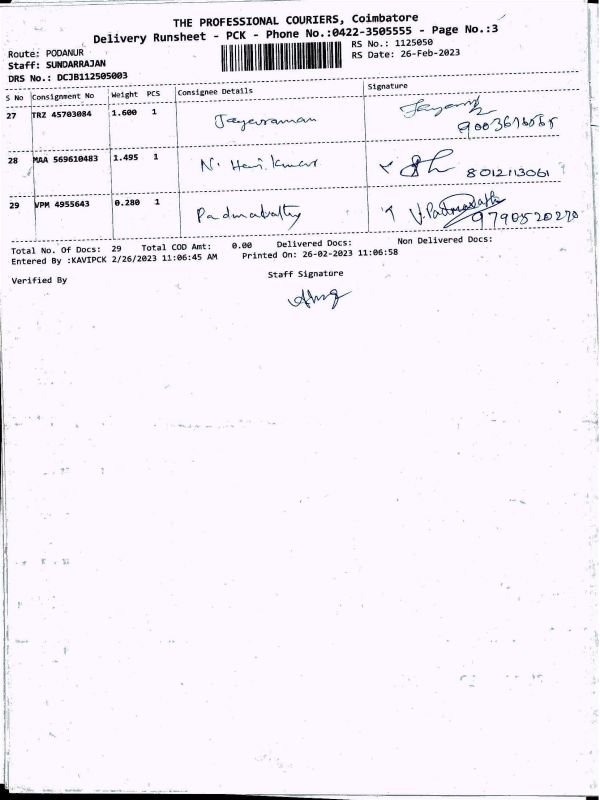 THE PROFESSIONAL COURIERS, Coimbatore
Delivery Runsheet - PCK - Phone No.:0422-3505555 - Page No.:3
Route: PODANUR
RS No.: 1125050
Staff: SUNDARRAJAN
RS Date: 26-Feb-2023
DRS No.: DCJB112505003
S No Consignment No Weight PCS Consignee Details Signature
27 TRZ 45703084 1.600 1 Jayaraman
28 MAA 569610483 1.495 1 N. Hari Kumar 8012113061
29 VPM 4955643 0.280 1 Padmabathy V. Padmavathi
9790520270
Total No. Of Docs: 29 Total COD Amt: 0.00 Delivered Docs: Non Delivered Docs:
Entered By :KAVIPCK 2/26/2023 11:06:45 AM Printed On: 26-02-2023 11:06:58
Verified By Staff Signature